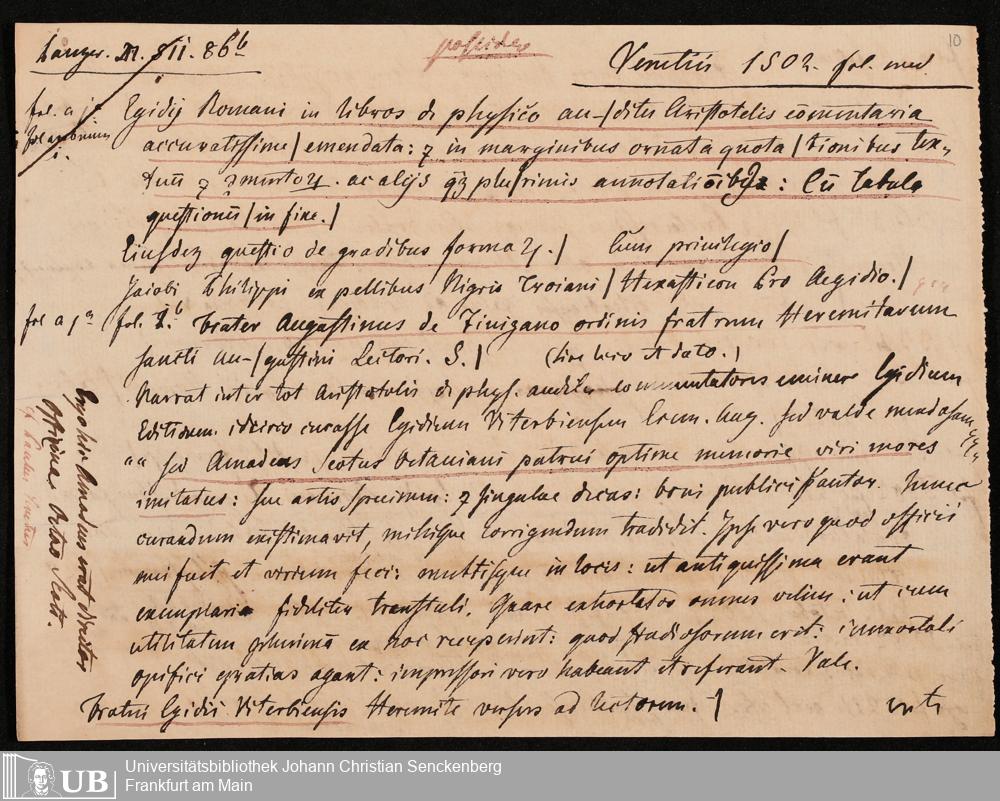 Langer. 86b
possideo
10
Venetiis 1502. fol. med.
fol. a jª
Egidij Romani in libros de physico au-/ditu Aristotelis commentaria
accuratissime/ emendata: ⁊ in marginibus ornata quota/tionibus tex-
tuū ⁊ ac alijs qȝ plu/rimis annotatiōibȝ: Cū tabula
questionū/ in fine./
Eiusdeȝ questio de gradibus formaꝝ./ Cum privilegio/
Jacobi Philippi ex pellibus Nigris Troiani/ Hexasticon Pro Aegidio./
fol. 1b frater Augustinus de ordinis fratrum Heremitarum
fol a 1ª
sancti au-/gustini Lectori. S./ (sine loco et dato.)
Narrat inter tot Aristotelis de phys. auditu commentatores eminere Egidium
Editionem idcirco curasse Egidium Viterbiensem Erem. Aug. sed valde mendosam
"" sed Amadeus Scotus Octaviani patrui optime memorie viri mores
imitatus: sue artis specimen: ⁊ singulare decus: boni publici fautor. Hunc
curandum existimavit, mihique corrigendum tradidit. Ipse vero quod officii
mei fuit et virium feci: multisque in locis: ut antiquissima erant
exemplaria fideliter transtuli. Quare exhortatos omnes velim: ut cum
utilitatem plurimā ex hoc receperint: quod studiosorum erit: immortali
opifici gratias agant: impressori vero habeant et referant. Vale.
Fratris Egidii Viterbiensis Heremite versus ad lectorem. /
verte
Ergo hic Amadeus erat director
officinae Octav. Scoti.
Universitätsbibliothek Johann Christian Senckenberg
Frankfurt am Main
UB